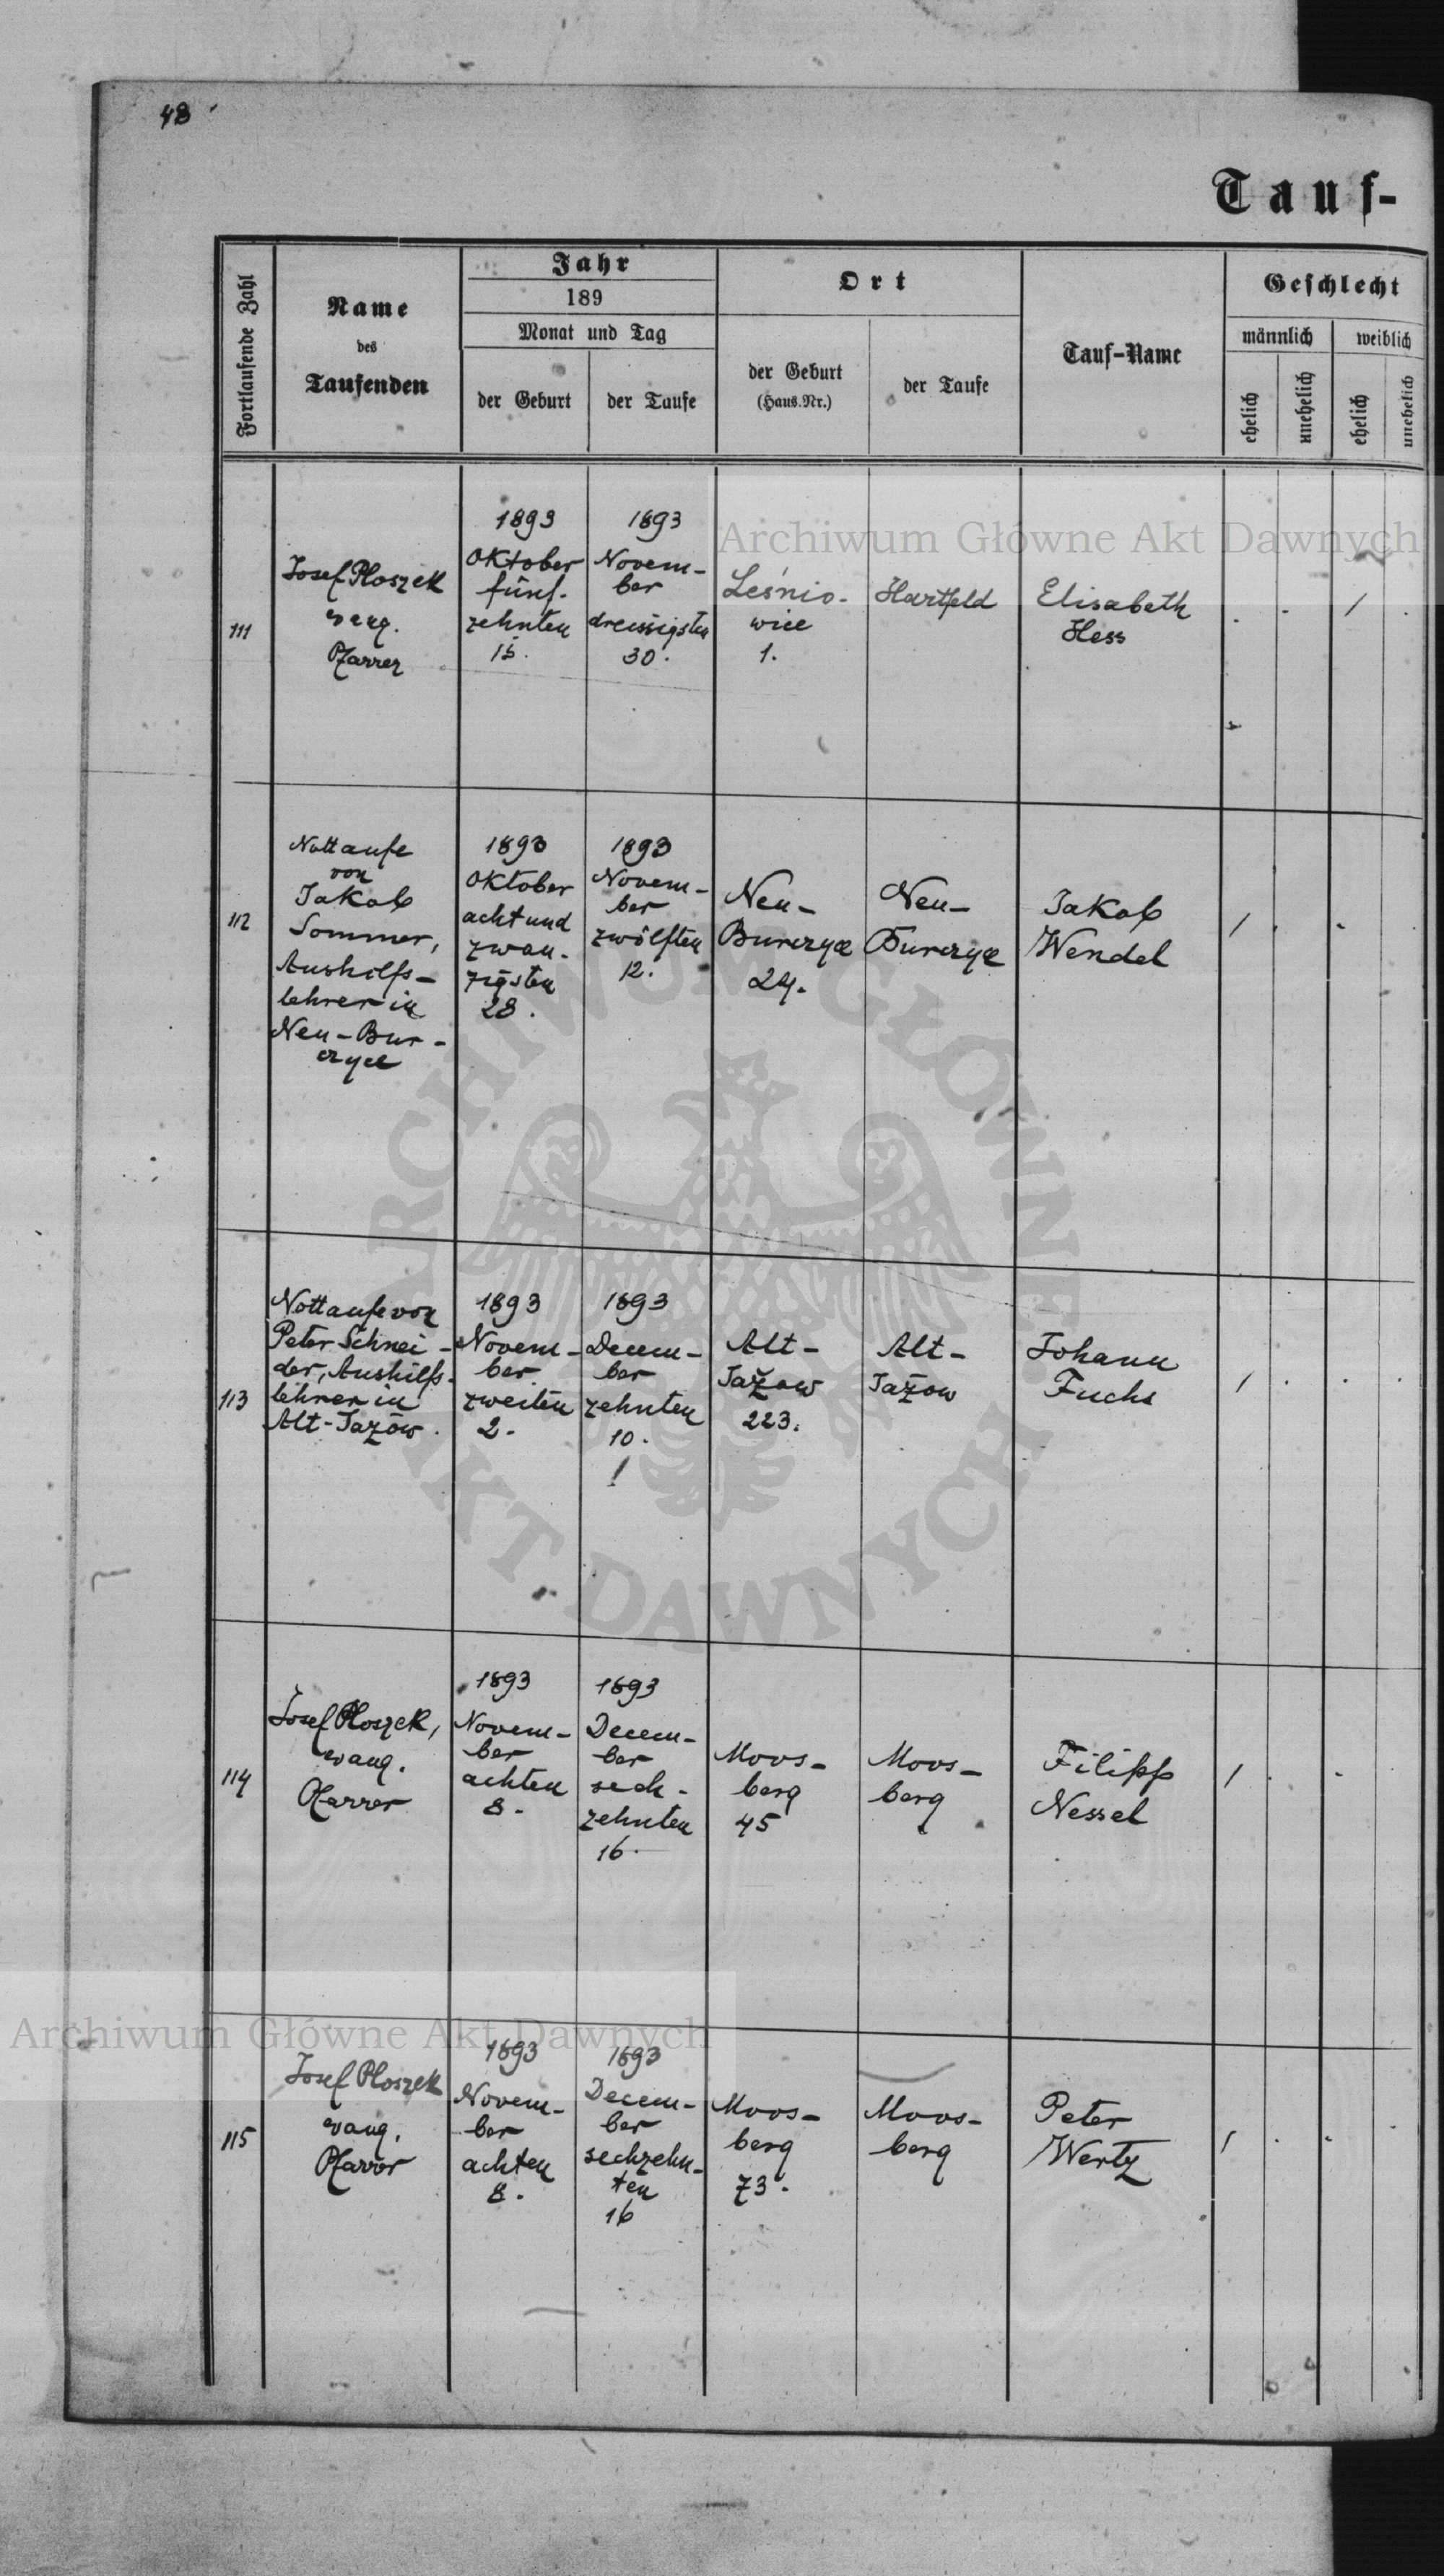 48
Tauf-
Fortlaufende Zahl
Name
des
Taufenden
Jahr
189
Monat und Tag
der Geburt
der Taufe
Ort
der Geburt
(Haus.Nr.)
der Taufe
Tauf-Name
Geschlecht
männlich
weiblich
ehelich
unehelich
ehelich
unehelich
111
Josef Ploszek
evang.
Pfarrer
1893
Oktober
fünf-
zehnten
15.
1893
Novem-
ber
dreissigsten
30.
Leśnio-
wice
1.
Hartfeld
Elisabeth
Hess
/
112
Nottaufe
von
Jakob
Sommer,
Aushilfs-
lehrer in
Neu-Bur-
czyce
1893
Oktober
achtund
zwan-
zigsten
28.
1893
Novem-
ber
zwölften
12.
Neu-
Burczyce
24.
Neu-
Burczyce
Jakob
Wendel
/
113
Nottaufe von
Peter Schnei-
der, Aushilfs-
lehrer in
Alt-Jazów.
1893
Novem-
ber
zweiten
2.
1893
Decem-
ber
zehnten
10.
Alt-
Jażow
223.
Alt-
Jażow
Johann
Fuchs
/
114
Josef Ploszek,
evang.
Pfarrer
1893
Novem-
ber
achten
8.
1893
Decem-
ber
sech-
zehnten
16.
Moos-
berg
45
Moos-
berg
Filipp
Nessel
/
115
Josef Ploszek
evang.
Pfarrer
1893
Novem-
ber
achten
8.
1893
Decem-
ber
sechzehn-
ten
16
Moos-
berg
73.
Moos-
berg
Peter
Wertz
/
Archiwum Główne Akt Dawnych
ARCHIWUM GŁÓWNE
AKT DAWNYCH
Archiwum Główne Akt Dawnych